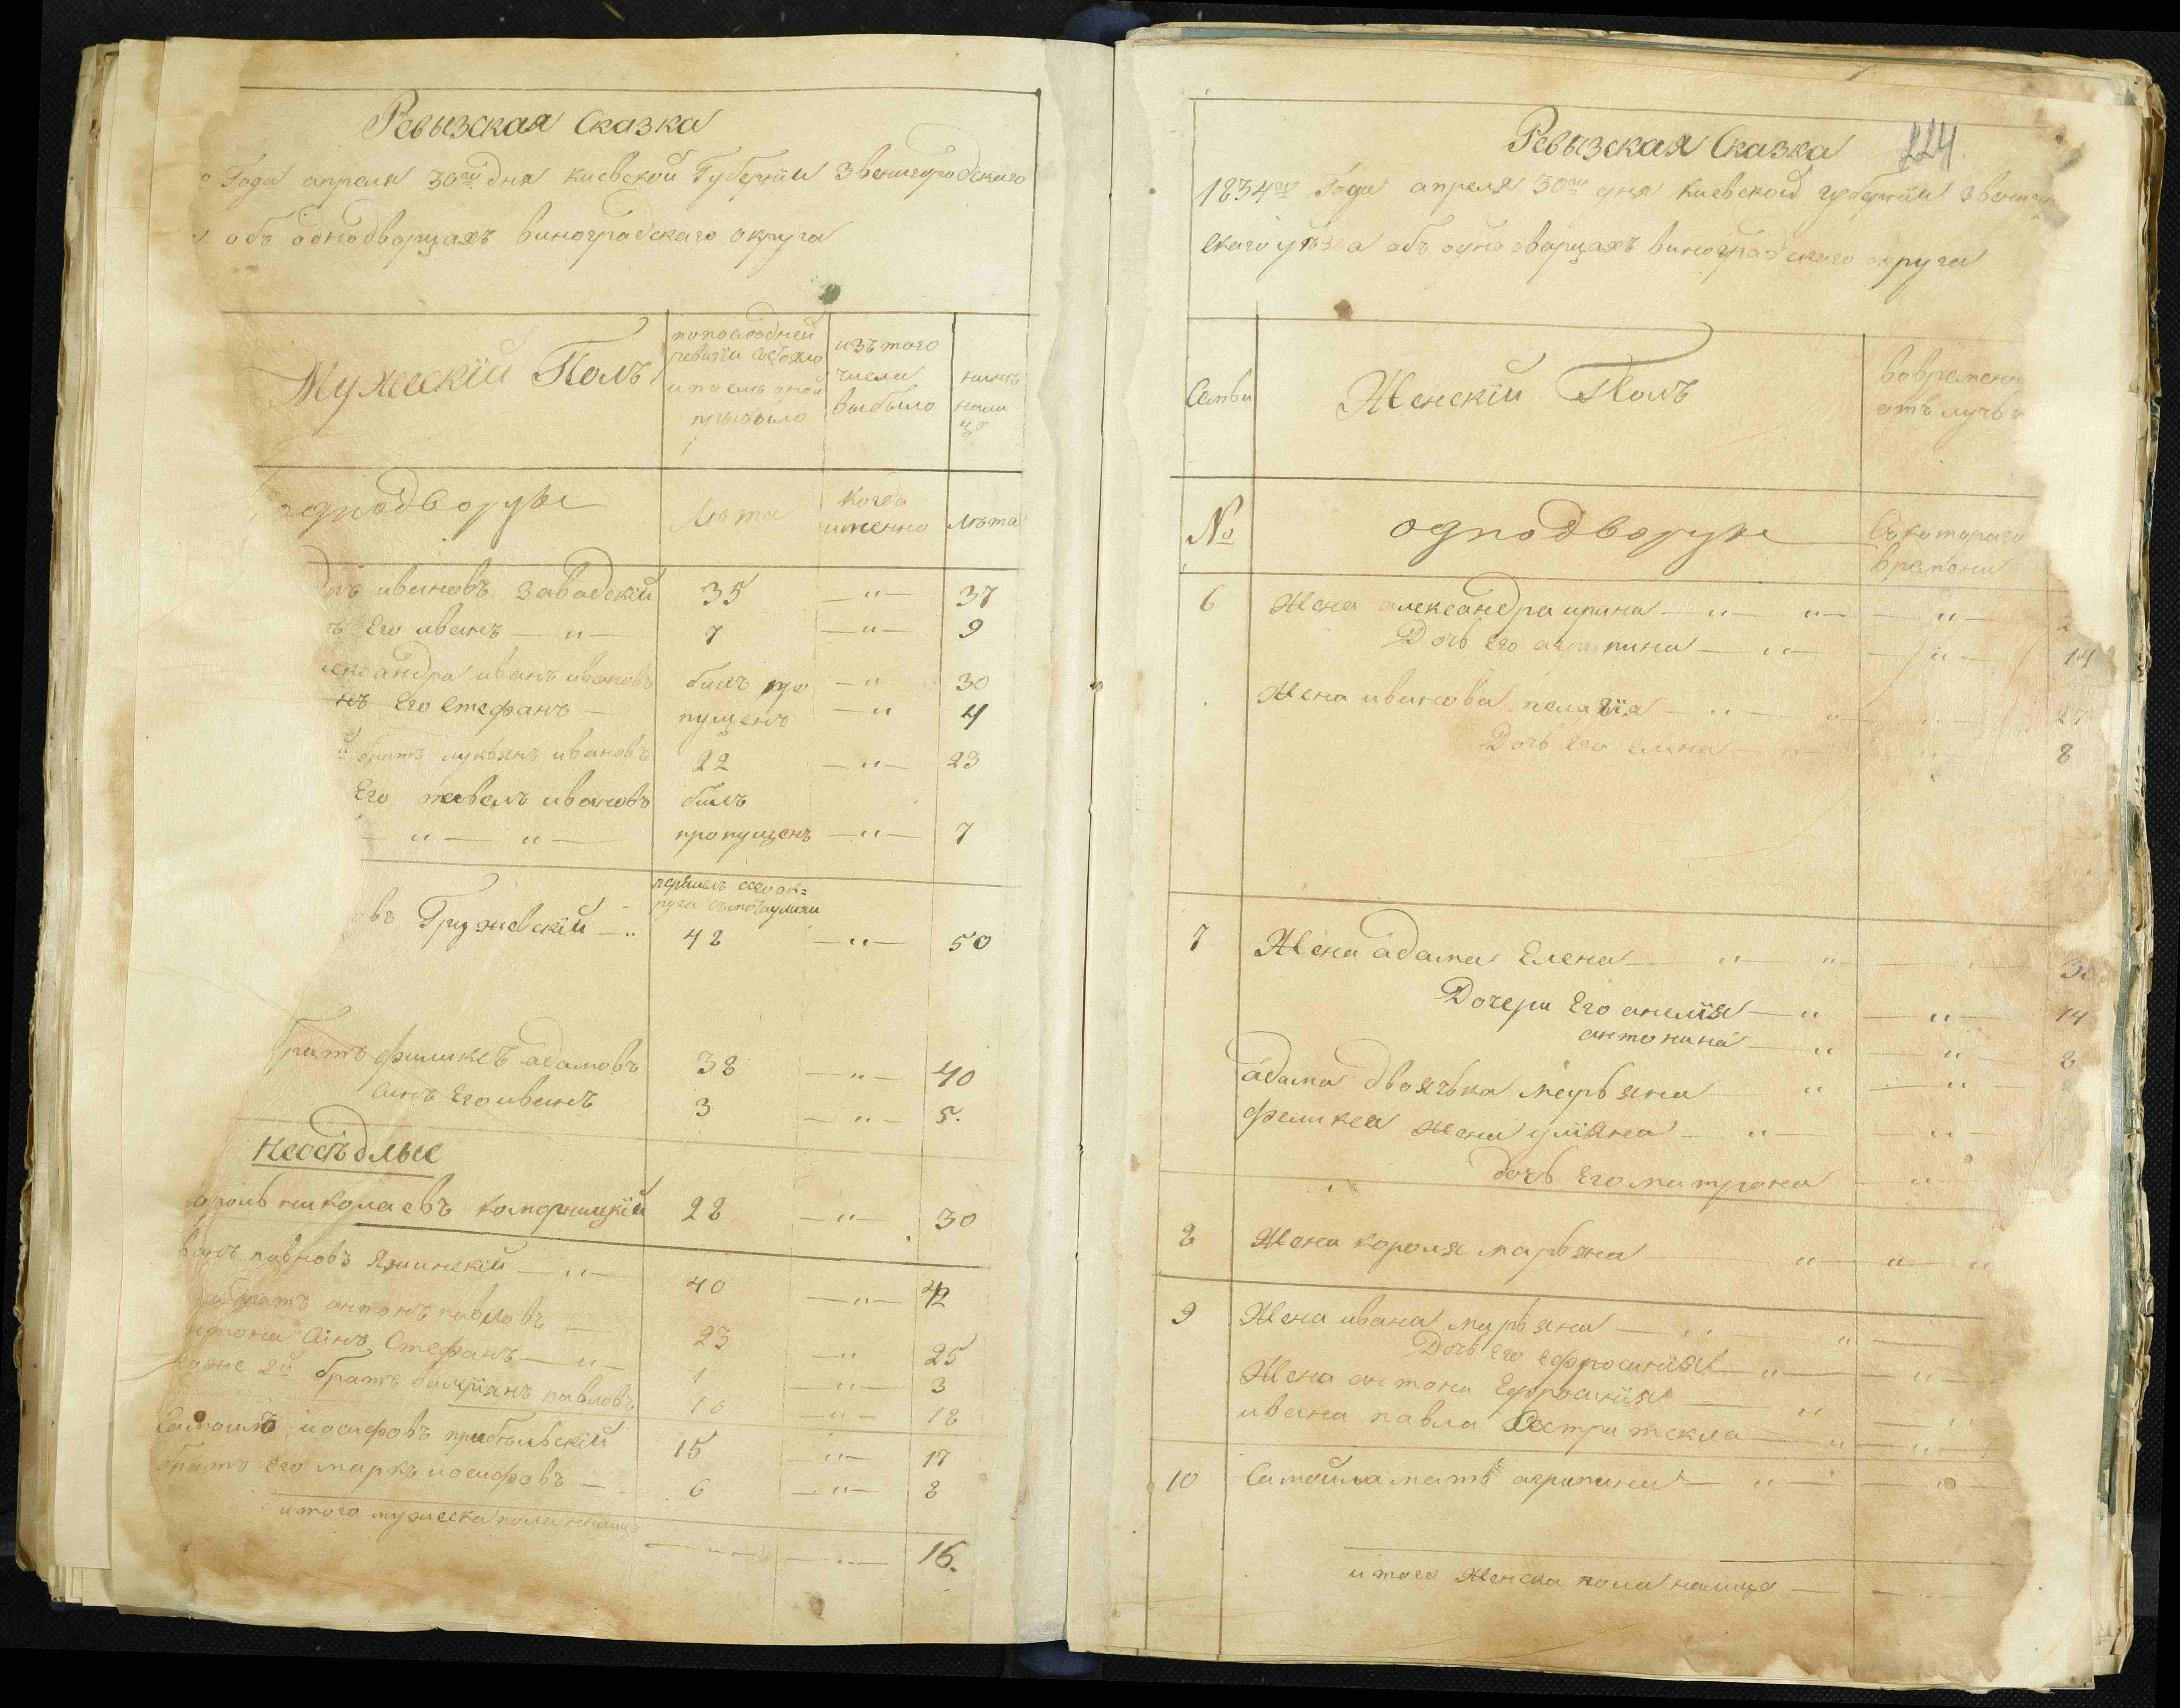 Ревызская Сказка
Года апреля 30го дня киевской Губернии Звенигородскаго
объ однодворцахъ виноградскаго округа
Мужескій Полъ
по последней
ревизіи состояло
и после оной
прыбыло
изъ того
числа
выбыло
ныне
нали
цо
однодворцы
Лета
Когда
именно
лета
ивановъ Завадскій 35 — " — 37
Его иванъ — " — 7 — " — 9
иванъ ивановъ билъ про — " 30
Его Стефанъ — пущенъ — " 4
братъ лукьянъ ивановъ 22 — " — 23
Его павелъ ивановъ билъ
— " — " — пропущенъ — " — 7
округа
овъ Гружевскій — " 48 — " — 50
братъ филиксъ адамовъ 38 — " — 40
Синъ Его иванъ 3 — " — 5.
Неоседлые
николаевъ коморницкій 28 — " — 30
Яжинскій — " — 40 — " — 42
братъ антонъ павловъ — 23 — " 25
Синъ Стефанъ — " — 1 — " — 3
2й братъ валеріянъ павловъ 16 — " — 18
иосифовъ 15 " — 17
братъ Его маркъ иосифовъ — 6 — " — 8
итого мужеска пола налицо — " — — " — 16.
Ревызская Сказка
224.
1834го Года апреля 30го дня Киевской губернии Звениго
скаго уезда объ однодворцахъ виноградскаго округа
Семьи
Женскій Полъ
во временн
отълучьк
№
однодворцы
Съ котораго
времени
6 Жена александра ирина — " — " — — " —
Дочь Его агрипина — " — — " — 14
Жена иванова пелагія — " — " — " — 27
Дочь Его Елена — " — " 8
7 Жена адама Елена — " — " — " — 30
Дочери Его анелія — " — " — 14
антонина — " — " — 8
адама двоячька марьяна — " — " —
феликса жена уліяна — " — " —
дочь Его матрона — "
8 Жена короля марьяна — " — " — "
9 Жена ивана марьяна — " — " —
Дочь Его ефросинія — " — " —
Жена антона Ефросинія — " — "
ивана павла Сестра текла — " — " —
10 Самойла мать агрипина — " — — " —
итого Женска пола налицо — —